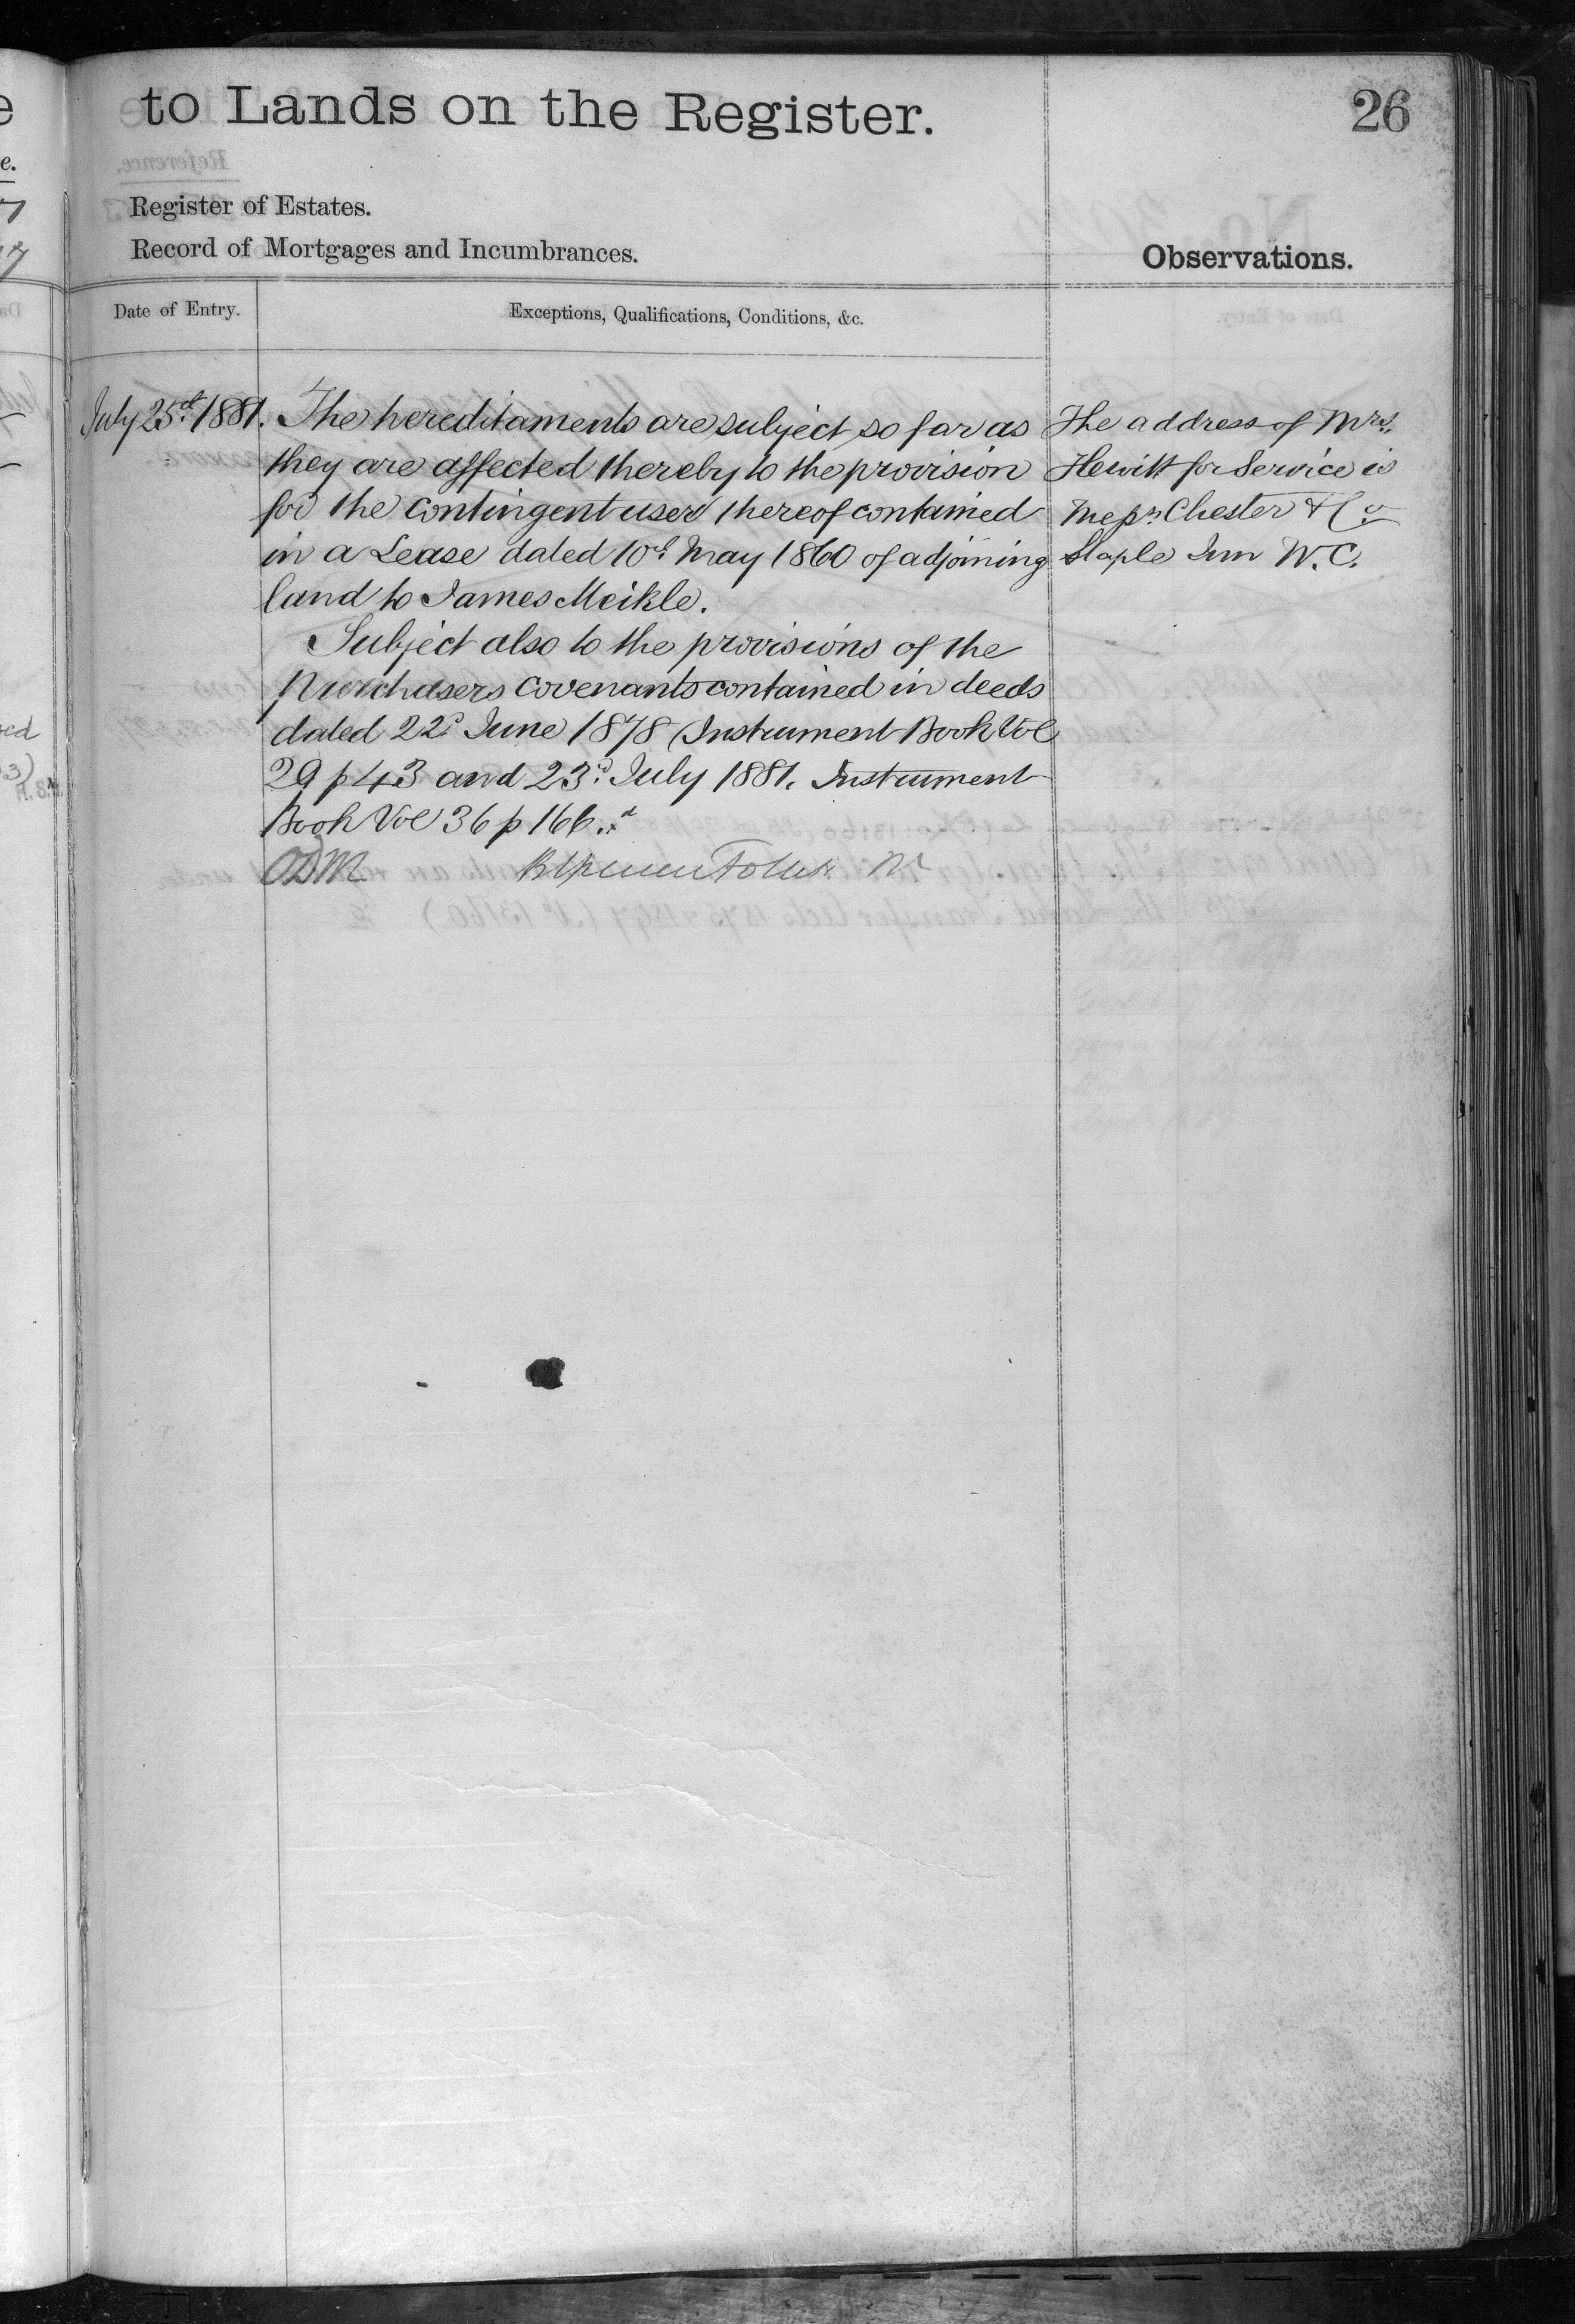 to Lands on the Register.
26
Register of Estates.
Record of Mortgages and Incumbrances.
Observations.
Date of Entry.
Exceptions, Qualifications, Conditions, &c.
July 25th 1881.
The hereditaments are subject so far as
they are affected thereby to the provision
for the contingent user thereof contained
in a Lease dated 10th May 1860 of adjoining
land to James Meikle.
Subject also to the provisions of the
Purchasers covenants contained in deeds
dated 22d June 1878 (Instrument Book Vol
29 p 43 and 23d July 1881. Instrument
Book Vol 36 p 166.
ODM
The address of Mrs.
Hewitt for Service is
Messrs Chester & Co
Staple Inn W.C.